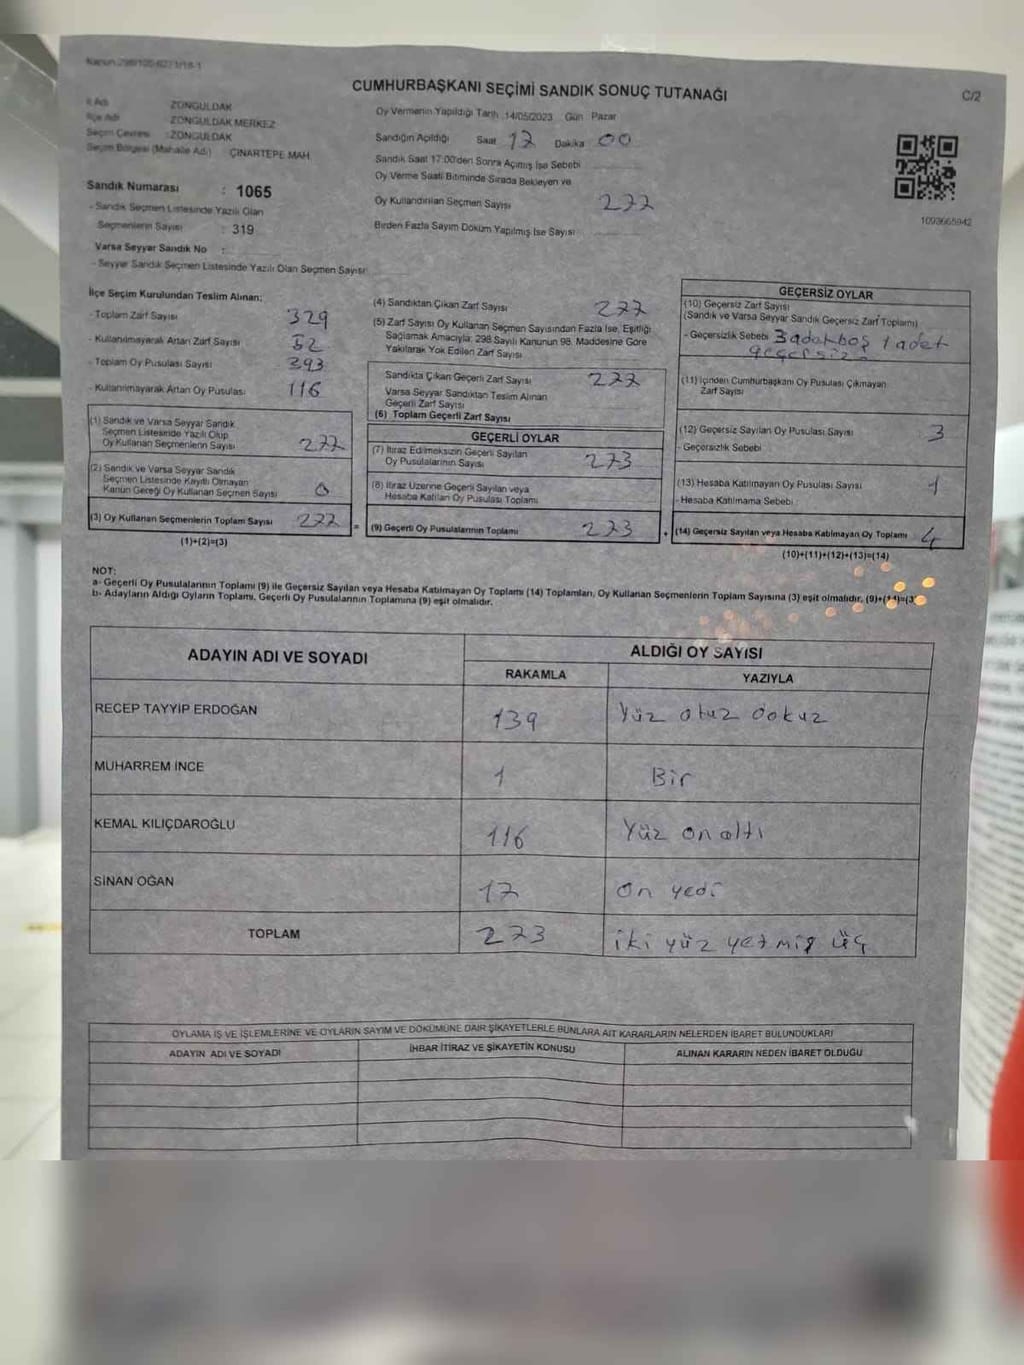 Kanun 298/105-6271/18-1
CUMHURBAŞKANI SEÇİMİ SANDIK SONUÇ TUTANAĞI
C/2
İl Adı ZONGULDAK
İlçe Adı ZONGULDAK MERKEZ
Seçim Çevresi : ZONGULDAK
Seçim Bölgesi (Mahalle Adı) ÇINARTEPE MAH.
Oy Vermenin Yapıldığı Tarih 14/05/2023 Gün Pazar
Sandığın Açıldığı Saat 17 Dakika 00
Sandık Saat 17:00'den Sonra Açılmış İse Sebebi
Oy Verme Saati Bitiminde Sırada Bekleyen ve
Oy Kullandırılan Seçmen Sayısı 277
Birden Fazla Sayım Döküm Yapılmış İse Sayısı
1093665942
Sandık Numarası : 1065
- Sandık Seçmen Listesinde Yazılı Olan
Seçmenlerin Sayısı : 319
Varsa Seyyar Sandık No :
- Seyyar Sandık Seçmen Listesinde Yazılı Olan Seçmen Sayısı
İlçe Seçim Kurulundan Teslim Alınan:
- Toplam Zarf Sayısı 329
- Kullanılmayarak Artan Zarf Sayısı 52
- Toplam Oy Pusulası Sayısı 393
- Kullanılmayarak Artan Oy Pusulası 116
(1) Sandık ve Varsa Seyyar Sandık
Seçmen Listesinde Yazılı Olup
Oy Kullanan Seçmenlerin Sayısı 277
(2) Sandık ve Varsa Seyyar Sandık
Seçmen Listesinde Kayıtlı Olmayan
Kanun Gereği Oy Kullanan Seçmen Sayısı 0
(3) Oy Kullanan Seçmenlerin Toplam Sayısı 277
(1)+(2)=(3)
=
(4) Sandıktan Çıkan Zarf Sayısı 277
(5) Zarf Sayısı Oy Kullanan Seçmen Sayısından Fazla İse, Eşitliği
Sağlamak Amacıyla; 298 Sayılı Kanunun 98. Maddesine Göre
Yakılarak Yok Edilen Zarf Sayısı
Sandıkta Çıkan Geçerli Zarf Sayısı 277
Varsa Seyyar Sandıktan Teslim Alınan
Geçerli Zarf Sayısı
(6) Toplam Geçerli Zarf Sayısı
GEÇERLİ OYLAR
(7) İtiraz Edilmeksizin Geçerli Sayılan
Oy Pusulalarının Sayısı 273
(8) İtiraz Üzerine Geçerli Sayılan veya
Hesaba Katılan Oy Pusulası Toplamı
(9) Geçerli Oy Pusulalarının Toplamı 273
+
GEÇERSİZ OYLAR
(10) Geçersiz Zarf Sayısı
(Sandık ve Varsa Seyyar Sandık Geçersiz Zarf Toplamı)
- Geçersizlik Sebebi 3 adet boş 1 adet
geçersiz
(11) İçinden Cumhurbaşkanı Oy Pusulası Çıkmayan
Zarf Sayısı
(12) Geçersiz Sayılan Oy Pusulası Sayısı 3
- Geçersizlik Sebebi
(13) Hesaba Katılmayan Oy Pusulası Sayısı 1
- Hesaba Katılmama Sebebi
(14) Geçersiz Sayılan veya Hesaba Katılmayan Oy Toplamı 4
(10)+(11)+(12)+(13)=(14)
NOT:
a- Geçerli Oy Pusulalarının Toplamı (9) ile Geçersiz Sayılan veya Hesaba Katılmayan Oy Toplamı (14) Toplamları, Oy Kullanan Seçmenlerin Toplam Sayısına (3) eşit olmalıdır. (9)+(14)=(3)
b- Adayların Aldığı Oyların Toplamı, Geçerli Oy Pusulalarının Toplamına (9) eşit olmalıdır.
ADAYIN ADI VE SOYADI
ALDIĞI OY SAYISI
RAKAMLA YAZIYLA
RECEP TAYYİP ERDOĞAN 139 Yüz otuz dokuz
MUHARREM İNCE 1 Bir
KEMAL KILIÇDAROĞLU 116 Yüz on altı
SİNAN OĞAN 17 On yedi
TOPLAM 273 iki yüz yetmiş üç
OYLAMA İŞ VE İŞLEMLERİNE VE OYLARIN SAYIM VE DÖKÜMÜNE DAİR ŞİKAYETLERLE BUNLARA AİT KARARLARIN NELERDEN İBARET BULUNDUKLARI
ADAYIN ADI VE SOYADI İHBAR İTİRAZ VE ŞİKAYETİN KONUSU ALINAN KARARIN NEDEN İBARET OLDUĞU